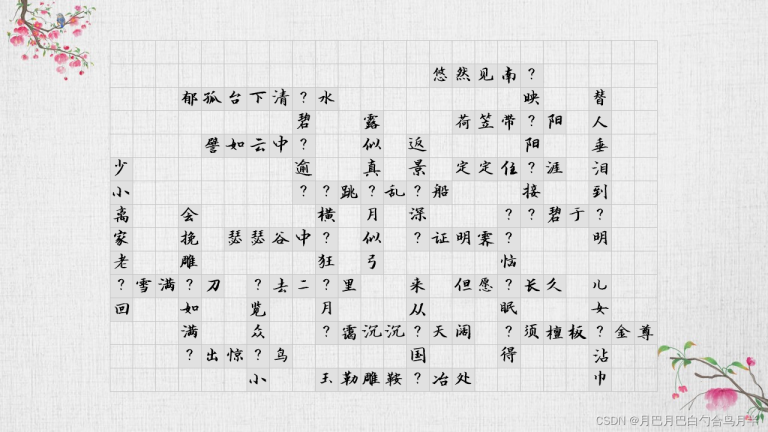 悠然见南?
郁孤台下清?水 映 替
碧 露 荷笠带?阳 人
譬如云中? 似 返 阳 垂
少 逾 真 景 定定住?涯 泪
小 ??跳?乱?船 接 到
离 会 横 月 深 ??碧于?
家 挽 瑟瑟谷中? 似 ?证明霁? 明
老 雕 狂 弓 恼
?雪满?刀 ?去二?里 来 但愿?长久 儿
回 如 览 月 从 眠 女
满 众 ?霭沉沉?天阔 ?须檀板?金尊
?出惊?鸟 国 得 沾
小 玉勒雕鞍?冶处 巾
CSDN @月巴月巴白勺合鸟月